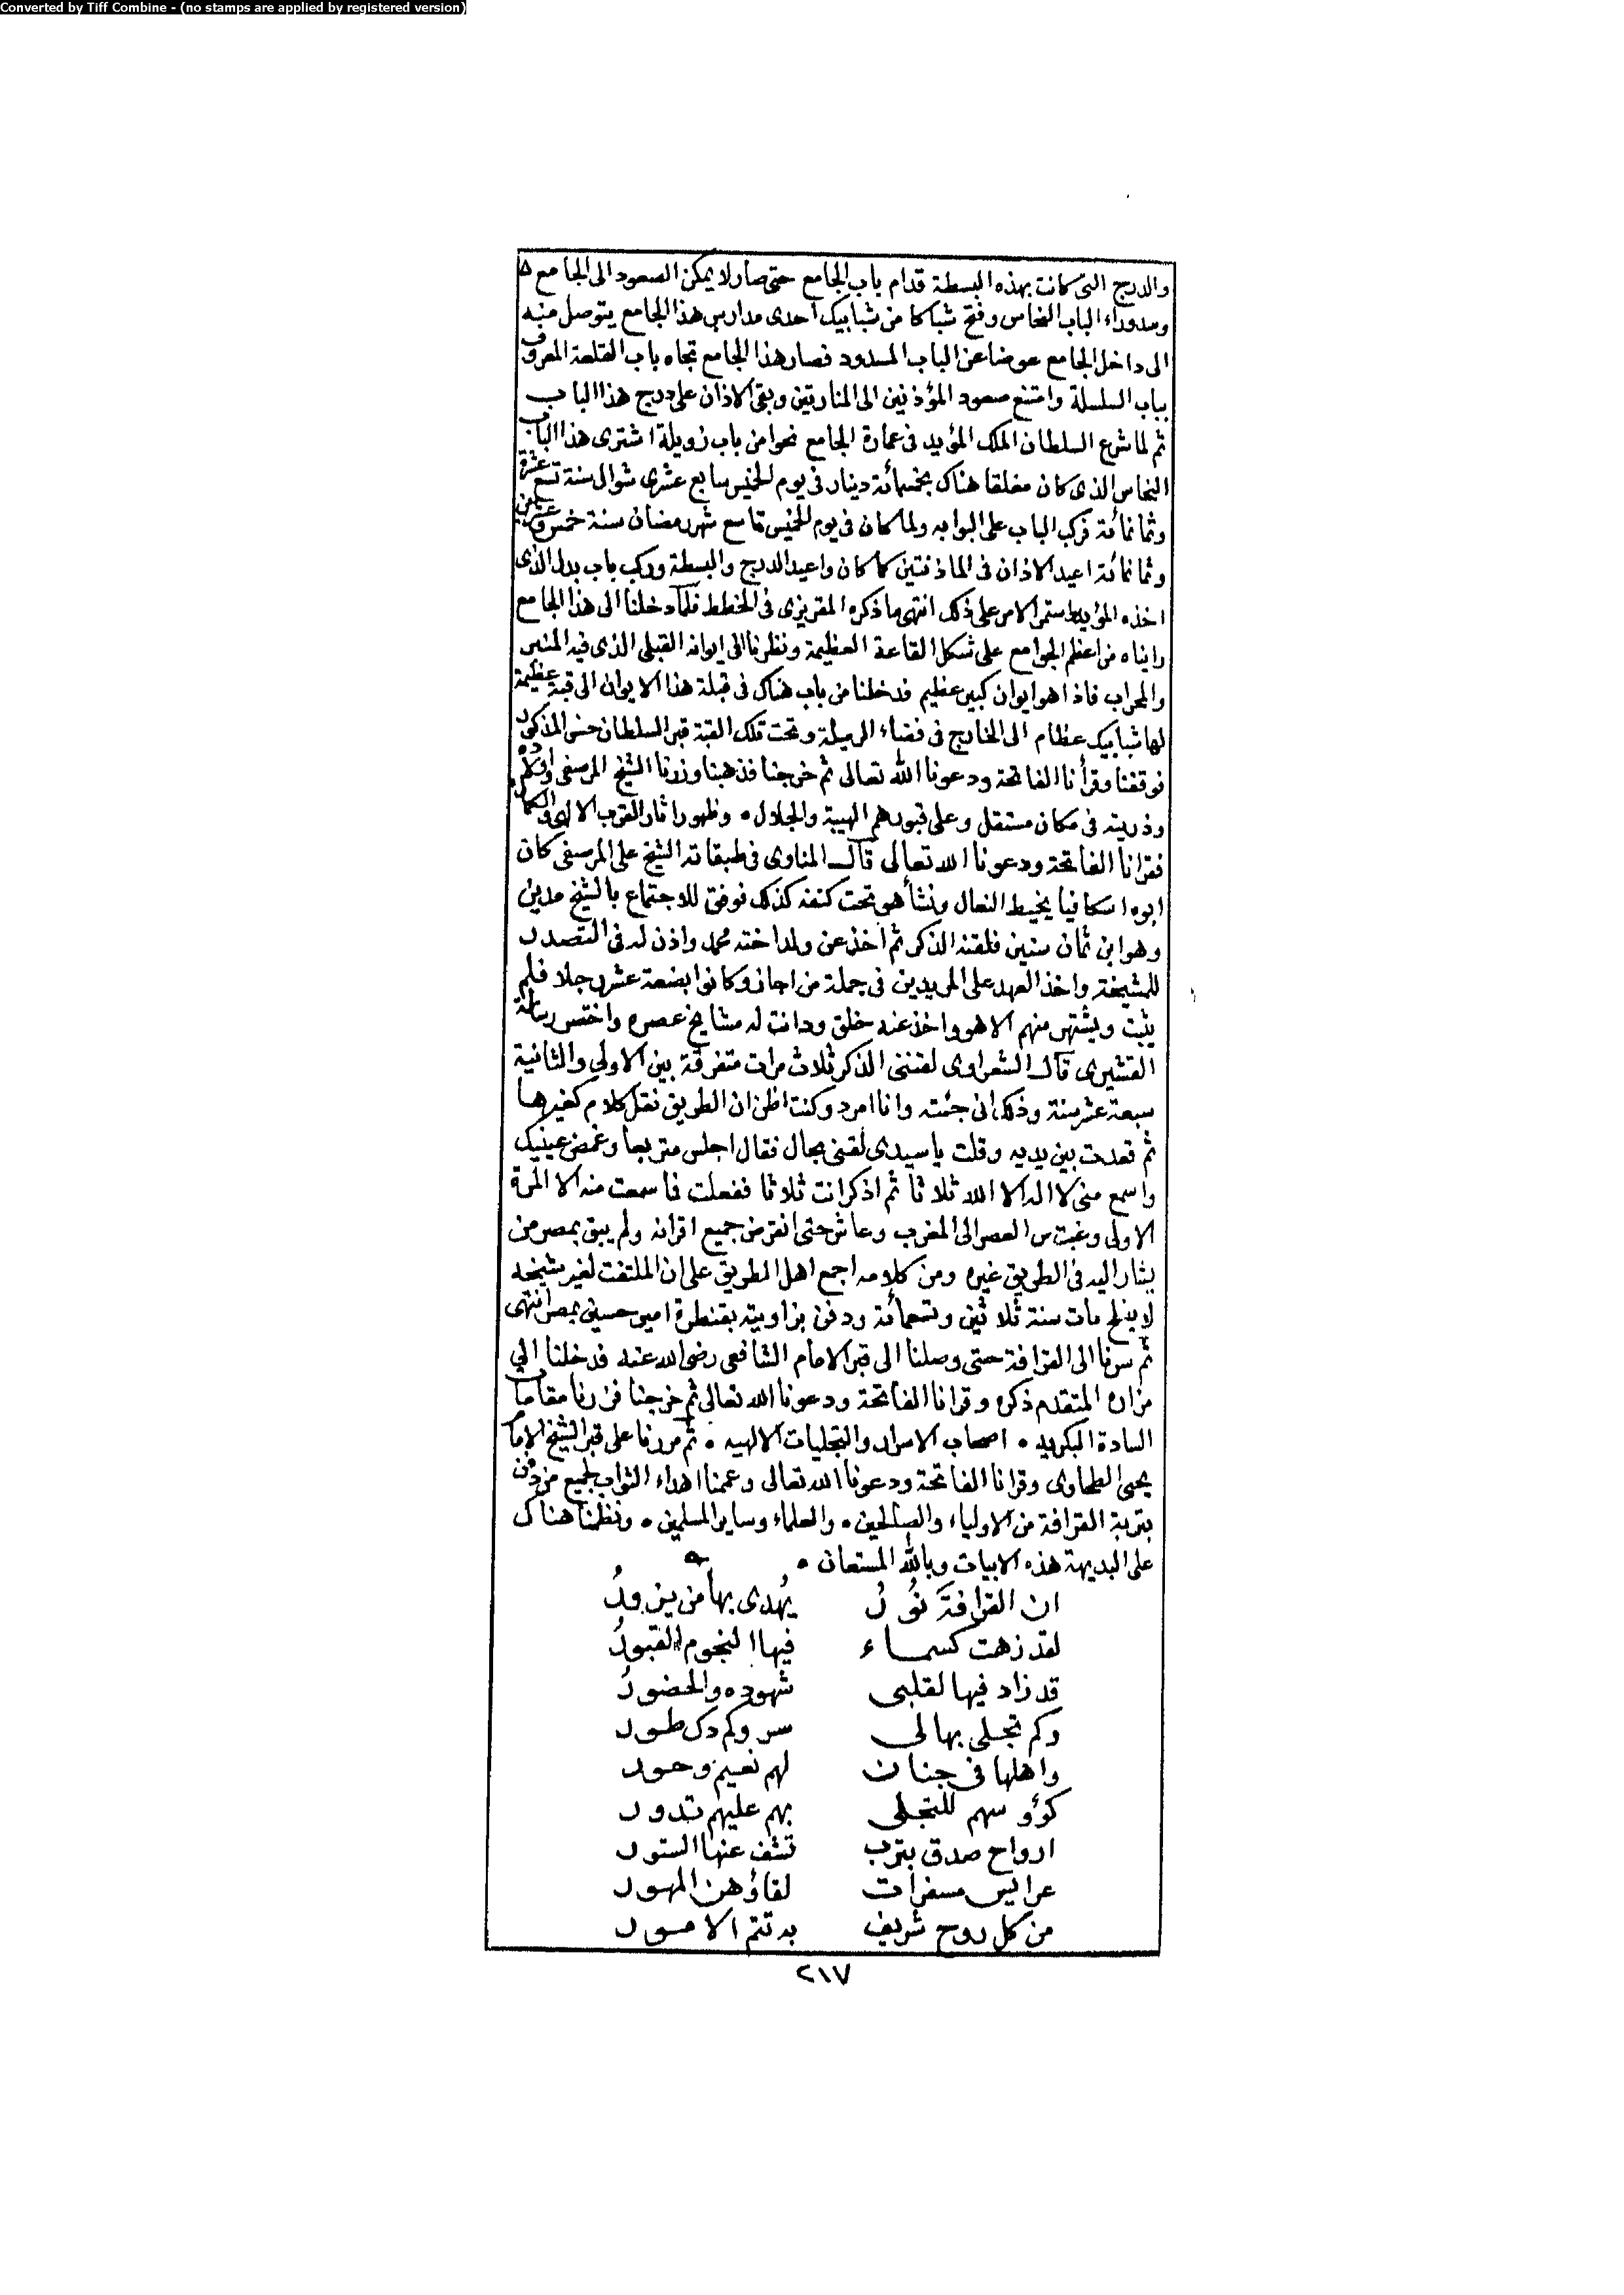 Converted by Tiff Combine - (no stamps are applied by registered version)
والدرج التى كانت بهذه البسطة قدام باب الجامع حتى صار لا يمكن الصعود الى الجامع
وسد وراء الباب النحاس وفتح شباكا من شبابيك احدى مدارس هذا الجامع يتوصل منه
الى داخل الجامع عوضا عن الباب المسدود فصار هذا الجامع تجاه باب القلعة المعروف
بباب السلسلة وامتنع صعود المؤذنين الى المنارتين وبقى الاذان على درج هذا الباب
ثم لما شرع السلطان الملك المؤيد فى عمارة الجامع نحوا من باب زويلة اشترى هذا الباب
النحاس الذى كان مغلقا هناك بخمسمائة دينار فى يوم الخميس سابع عشرى شوال سنة تسع عشرة
وثمانمائة فركب الباب على البوابه ولما كان فى يوم الخميس تاسع شهر رمضان سنة خمس وعشرين
وثمانمائة اعيد الاذان فى الماذنتين كما كان واعيد الدرج والبسطة وركب باب بدل الذى
اخذه المؤيد واستمر الامر على ذلك انتهى ما ذكره المقريزى فى الخطط فلما دخلنا الى هذا الجامع
رايناه من اعظم الجوامع على شكل القاعة العظيمة ونظرنا الى ايوانه القبلى الذى فيه المنبر
والمحراب فاذا هو ايوان كبير عظيم فدخلنا من باب هناك فى قبلة هذا الايوان الى قبة عظيمة
لها شبابيك عظام الى الخارج فى فضاء الرميلة وتحت تلك القبة قبر السلطان حسن المذكور
فوقفنا وقرأنا الفاتحة ودعونا الله تعالى ثم خرجنا فذهبنا وزرنا الشيخ المرصفى واولاده
وذريته فى مكان مستقل وعلى قبورهم الهيبة والجلال • وظهور اثار القرب الالهى والكمال
فقرانا الفاتحة ودعونا الله تعالى قال المناوى فى طبقاته الشيخ على المرصفى كان
ابوه اسكافيا يخيط النعال ونشأ هو تحت كنفه كذلك فوفق للاجتماع بالشيخ مدين
وهو ابن ثمان سنين فلقنه الذكر ثم اخذ عن ولد اخته محمد واذن له فى التصدر
للمشيخة واخذ العهد على المريدين فى جملة من اجاز وكانوا بضعة عشر رجلا فلم
يثبت ويشتهر منهم الا هو واخذ عنه خلق ودانت له مشايخ عصره واختصر رسالة
القشيرى قال الشعراوى لقننى الذكر ثلاث مرات متفرقة بين الاولى والثانية
سبعة عشر سنة وذلك انى جئته وانا امرد وكنت اظن ان الطريق نقل كلام كغيرها
ثم قعدت بين يديه وقلت يا سيدى لقنى بحال فقال اجلس متربعا وغمض عينيك
واسمع منى لا اله الا الله ثلاثا ثم اذكر انت ثلاثا ففعلت فما سمعت منه الا المرة
الاولى وغبت من العصر الى المغرب وعاش حتى انقرض جميع اقرانه ولم يبق بمصر من
يشار اليه فى الطريق غيره ومن كلامه اجمع اهل الطريق على ان الملتفت لغير شيخه
لا يفلح مات سنة ثلاثين وتسعمائة ودفن بزاويته بقنطرة امير حسين بمصر انتهى
ثم سرنا الى القرافة حتى وصلنا الى قبر الامام الشافعى رضى الله عنه فدخلنا الى
مزاره المتقدم ذكره وقرانا الفاتحة ودعونا الله تعالى ثم خرجنا فزرنا مقامات
السادة البكريه • اصحاب الاسرار والتجليات الالهيه • ثم مررنا على قبر الشيخ الامام
يحيى الطحاوى وقرانا الفاتحة ودعونا الله تعالى وعممنا اهداء الثواب لجميع من دفن
بتربة القرافة من الاولياء والصالحين • والعلماء وساير المسلمين • ونظمنا هناك
على البديهة هذه الابيات وبالله المستعان •
ان القرافةَ نُورُ يُهدى بها من يزورُ
لقد زهت كسماء فيها النجوم القبورُ
قد زاد فيها لقلبى شهوده والحضورُ
وكم تجلى بها لى سر وكم دك طور
واهلها فى جنان لهم نعيم وحور
كؤوسهم للتجلى بهم عليهم تدور
ارواح صدق بترب تشف عنها الستور
عرايس مسفرات لقاؤهن المهور
من كل روح شريف به تتم الامور
٢١٧